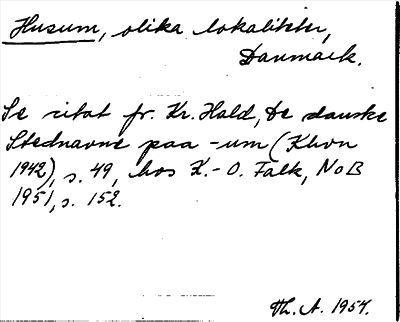 Husum, olika lokaliteter,
Danmark.
Se citat fr. Kr. Hald, De danske
Stednavne paa -um (Khvn
1942), s. 49, hos K.-O. Falk, NoB
1951, s. 152.
Th. A. 1957.